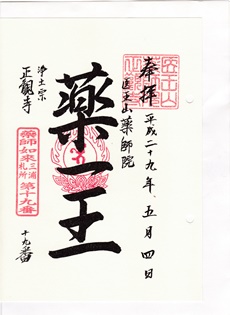 奉拝
平成二十九年、五月四日
医王山薬師院
薬王
浄土宗
正観寺
薬師如来三浦札所第十九番
十九番